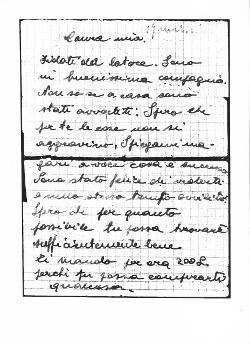 Laura mia.
Fidati del latore. Sono
in buonissima compagnia.
Non so se a casa sono
stati avvertiti. Spero che
per te le cose non si
aggravino. Spiegami ma-
gari a voce cosa è
Sono stato felice di vederti
e nello stesso tempo avvilito.
Spero che per quanto
possibile tu possa trovarti
sufficientemente bene
ti mando per ora 200L
perché tu possa comprarti
qualcosa.